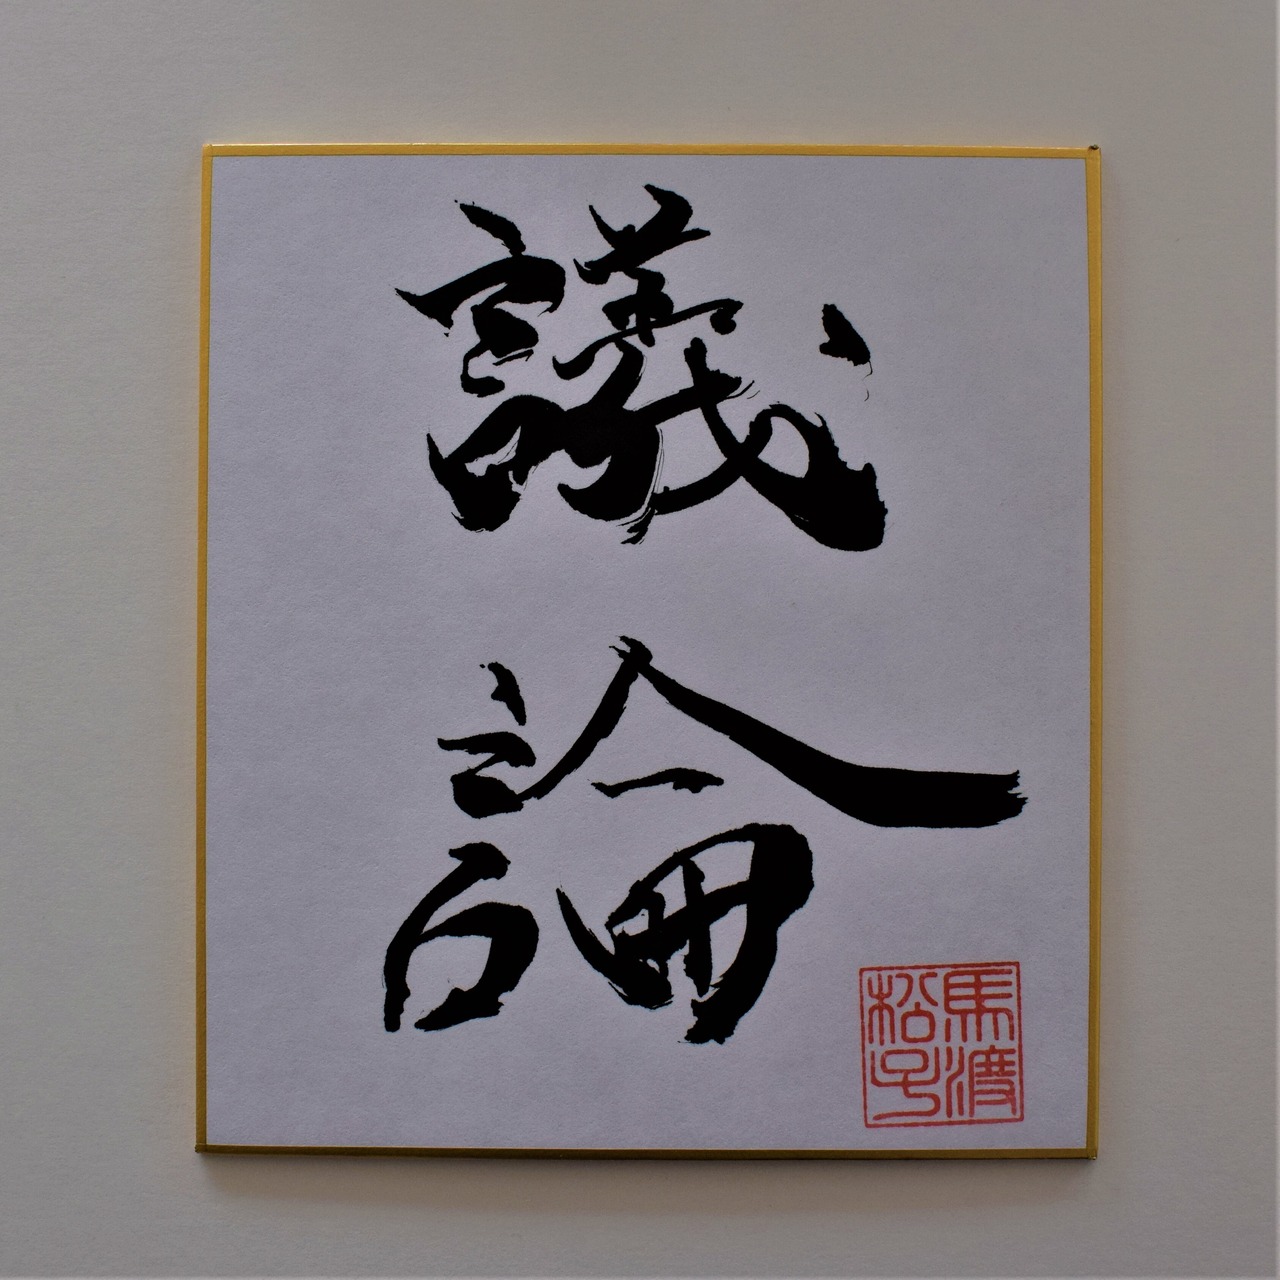 議
論
馬渡
松子